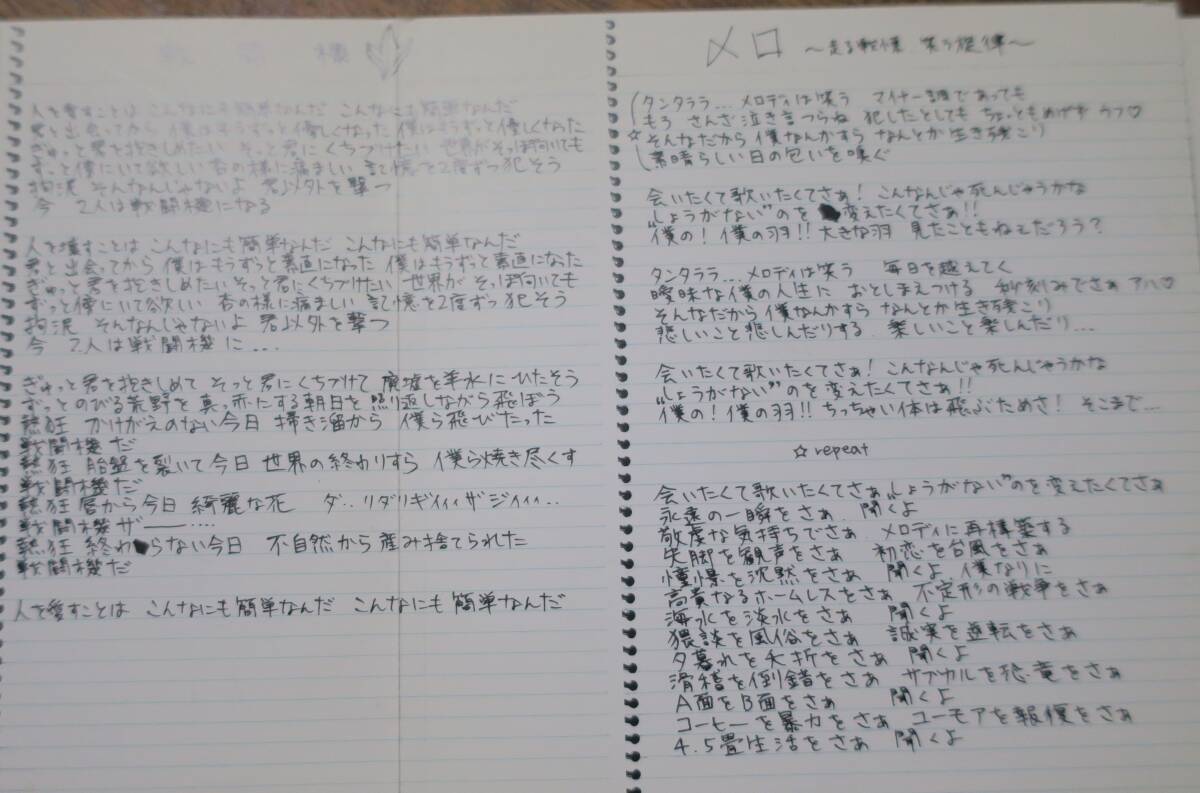 戦闘機
人を愛すことは こんなにも簡単なんだ こんなにも簡単なんだ
君と出会ってから 僕はもうずっと優しくなった 僕はもうずっと優しくなった
ぎゅっと君を抱きしめたい そっと君にくちづけたい 世界がそっぽ向いても
ずっと傍にいて欲しい 杏の様に痛ましい 記憶を2度ずつ犯そう
拘泥 そんなんじゃないよ 君以外を撃つ
今 2人は戦闘機になる
人を壊すことは こんなにも簡単なんだ こんなにも簡単なんだ
君と出会ってから 僕はもうずっと素直になった 僕はもうずっと素直になった
ぎゅっと君を抱きしめたい そっと君にくちづけたい 世界がそっぽ向いても
ずっと傍にいて欲しい 杏の様に痛ましい 記憶を2度ずつ犯そう
拘泥 そんなんじゃないよ 君以外を撃つ
今 2人は戦闘機に...
ぎゅっと君を抱きしめて そっと君にくちづけて 廃墟を羊水にひたそう
ずっとのびる荒野を真っ赤にする朝日を照り返しながら飛ぼう
熱狂 かけがえのない今日 掃き溜から 僕ら飛びたった
戦闘機だ
熱狂 胎盤を裂いて今日 世界の終わりすら 僕ら焼き尽くす
戦闘機だ
熱狂 唇から今日 綺麗な花 ダ‥リダリギィィィザジィィィ...
戦闘機ザー――‥‥
熱狂 終わらない今日 不自然から産み捨てられた
戦闘機だ
人を愛すことは こんなにも簡単なんだ こんなにも簡単なんだ
メロ 〜走る戦慄 笑う旋律〜
タンタララ... メロディは笑う マイナー調であっても
もう さんざ泣き言つらね 犯したとしても ちょっともめげず ウフ♡
☆そんなだから 僕なんかすら なんとか生き残こり
素晴らしい日の匂いを嗅ぐ
会いたくて歌いたくてさぁ! こんなんじゃ死んじゃうかな
"しょうがない"のを 変えたくてさぁ!!
僕の! 僕の羽!! 大きな羽 見たこともねぇだろう?
タンタララ... メロディは笑う 毎日を越えてく
曖昧な僕の人生に おとしまえつける 秒刻みでさぁ アハ♡
そんなだから 僕なんかすら なんとか生き残こり
悲しいこと悲しんだりする 楽しいこと楽しんだり...
会いたくて歌いたくてさぁ! こんなんじゃ死んじゃうかな
"しょうがない"のを変えたくてさぁ!!
僕の! 僕の羽!! ちっちゃい体は飛ぶためさ! そこまで...
☆repeat
会いたくて歌いたくてさぁ "しょうがない"のを変えたくてさぁ
永遠の一瞬をさぁ 聞くよ
敬虔な気持ちでさぁ メロディに再構築する
失脚を観声をさぁ 初恋を台風をさぁ
憧憬を沈黙をさぁ 聞くよ 僕なりに
高貴なるホームレスをさぁ 不定形の戦争をさぁ
海水を淡水をさぁ 聞くよ
猥談を風俗をさぁ 誠実を逆転をさぁ
夕暮れを夭折をさぁ 聞くよ
滑稽を倒錯をさぁ サブカルを恐竜をさぁ
A面をB面をさぁ 聞くよ
コーヒーを暴力をさぁ ユーモアを報復をさぁ
4.5畳生活をさぁ 聞くよ